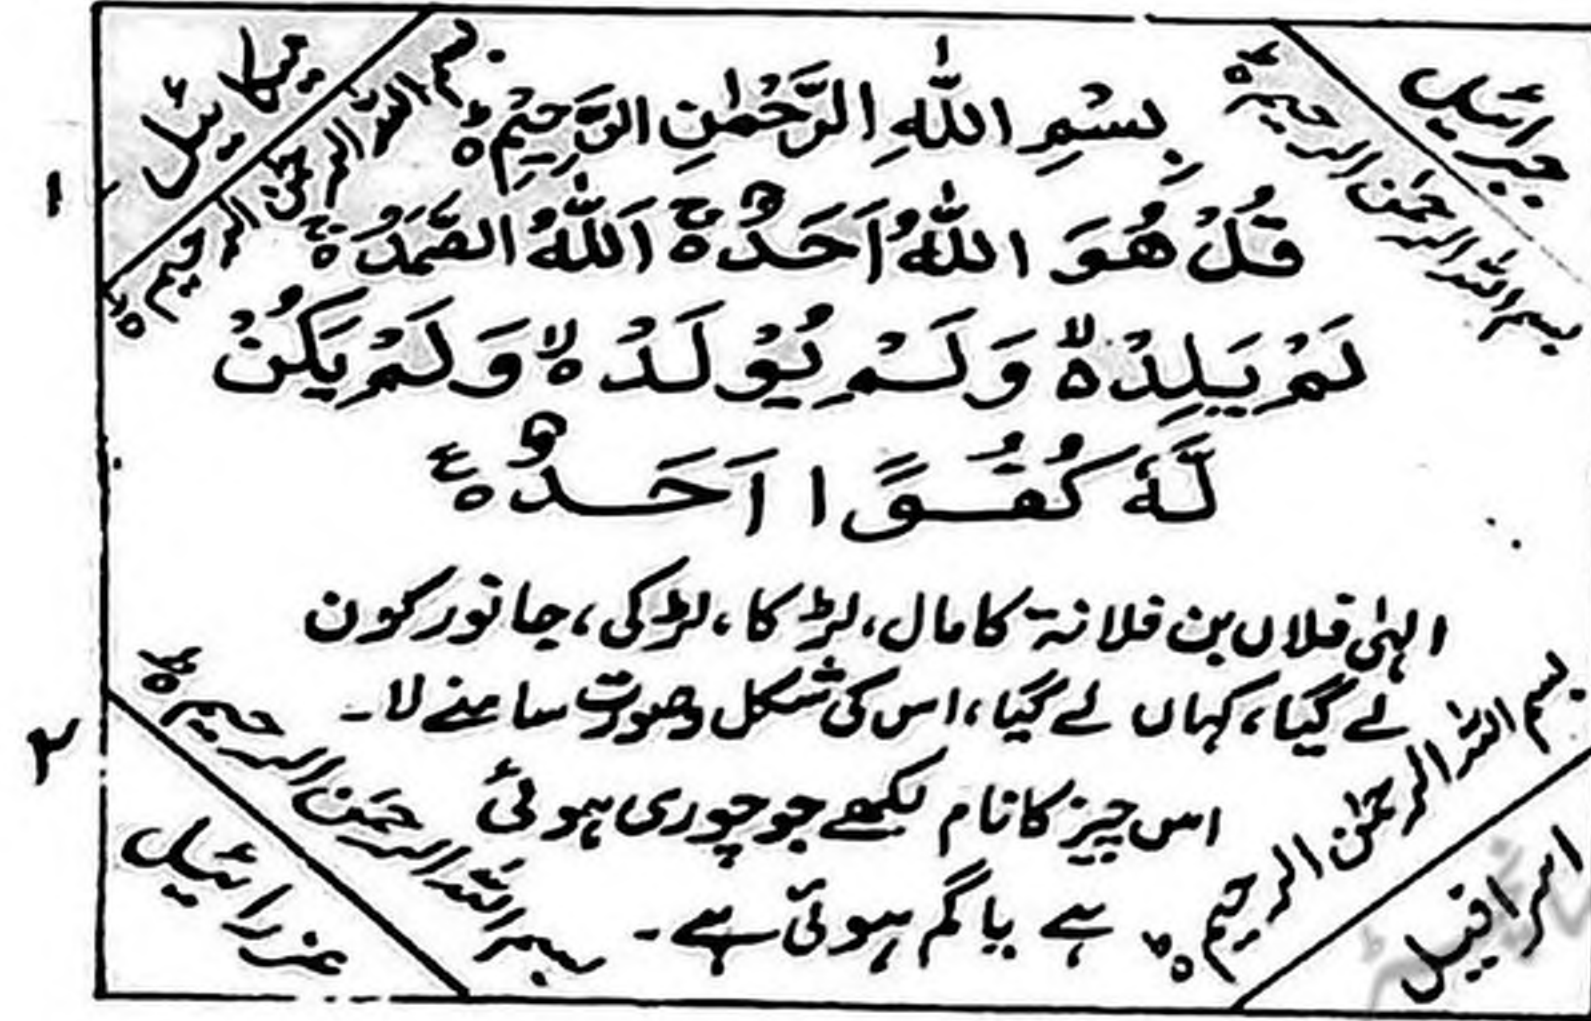 جبرائیل
بسم اللہ الرحمٰن الرحیم
میکائیل
بسم اللہ الرحمٰن الرحیم
بِسْمِ اللّٰهِ الرَّحْمٰنِ الرَّحِيْمِ
قُلْ هُوَ اللّٰهُ اَحَدٌ ۚ اَللّٰهُ الصَّمَدُ ۚ
لَمْ يَلِدْ ۙ وَلَمْ يُوْلَدْ ۙ وَلَمْ يَكُنْ
لَّهٗ كُفُوًا اَحَدٌ
الہٰی فلاں بن فلانۃ کا مال، لڑکا، لڑکی، جانور کون
لے گیا، کہاں لے گیا، اس کی شکل وصورت سامنے لا۔
اس چیز کا نام لکھے جو چوری ہوئی
ہے یا گم ہوئی ہے۔
بسم اللہ الرحمٰن الرحیم
اسرافیل
بسم اللہ الرحمٰن الرحیم
عزرائیل
۱
۲